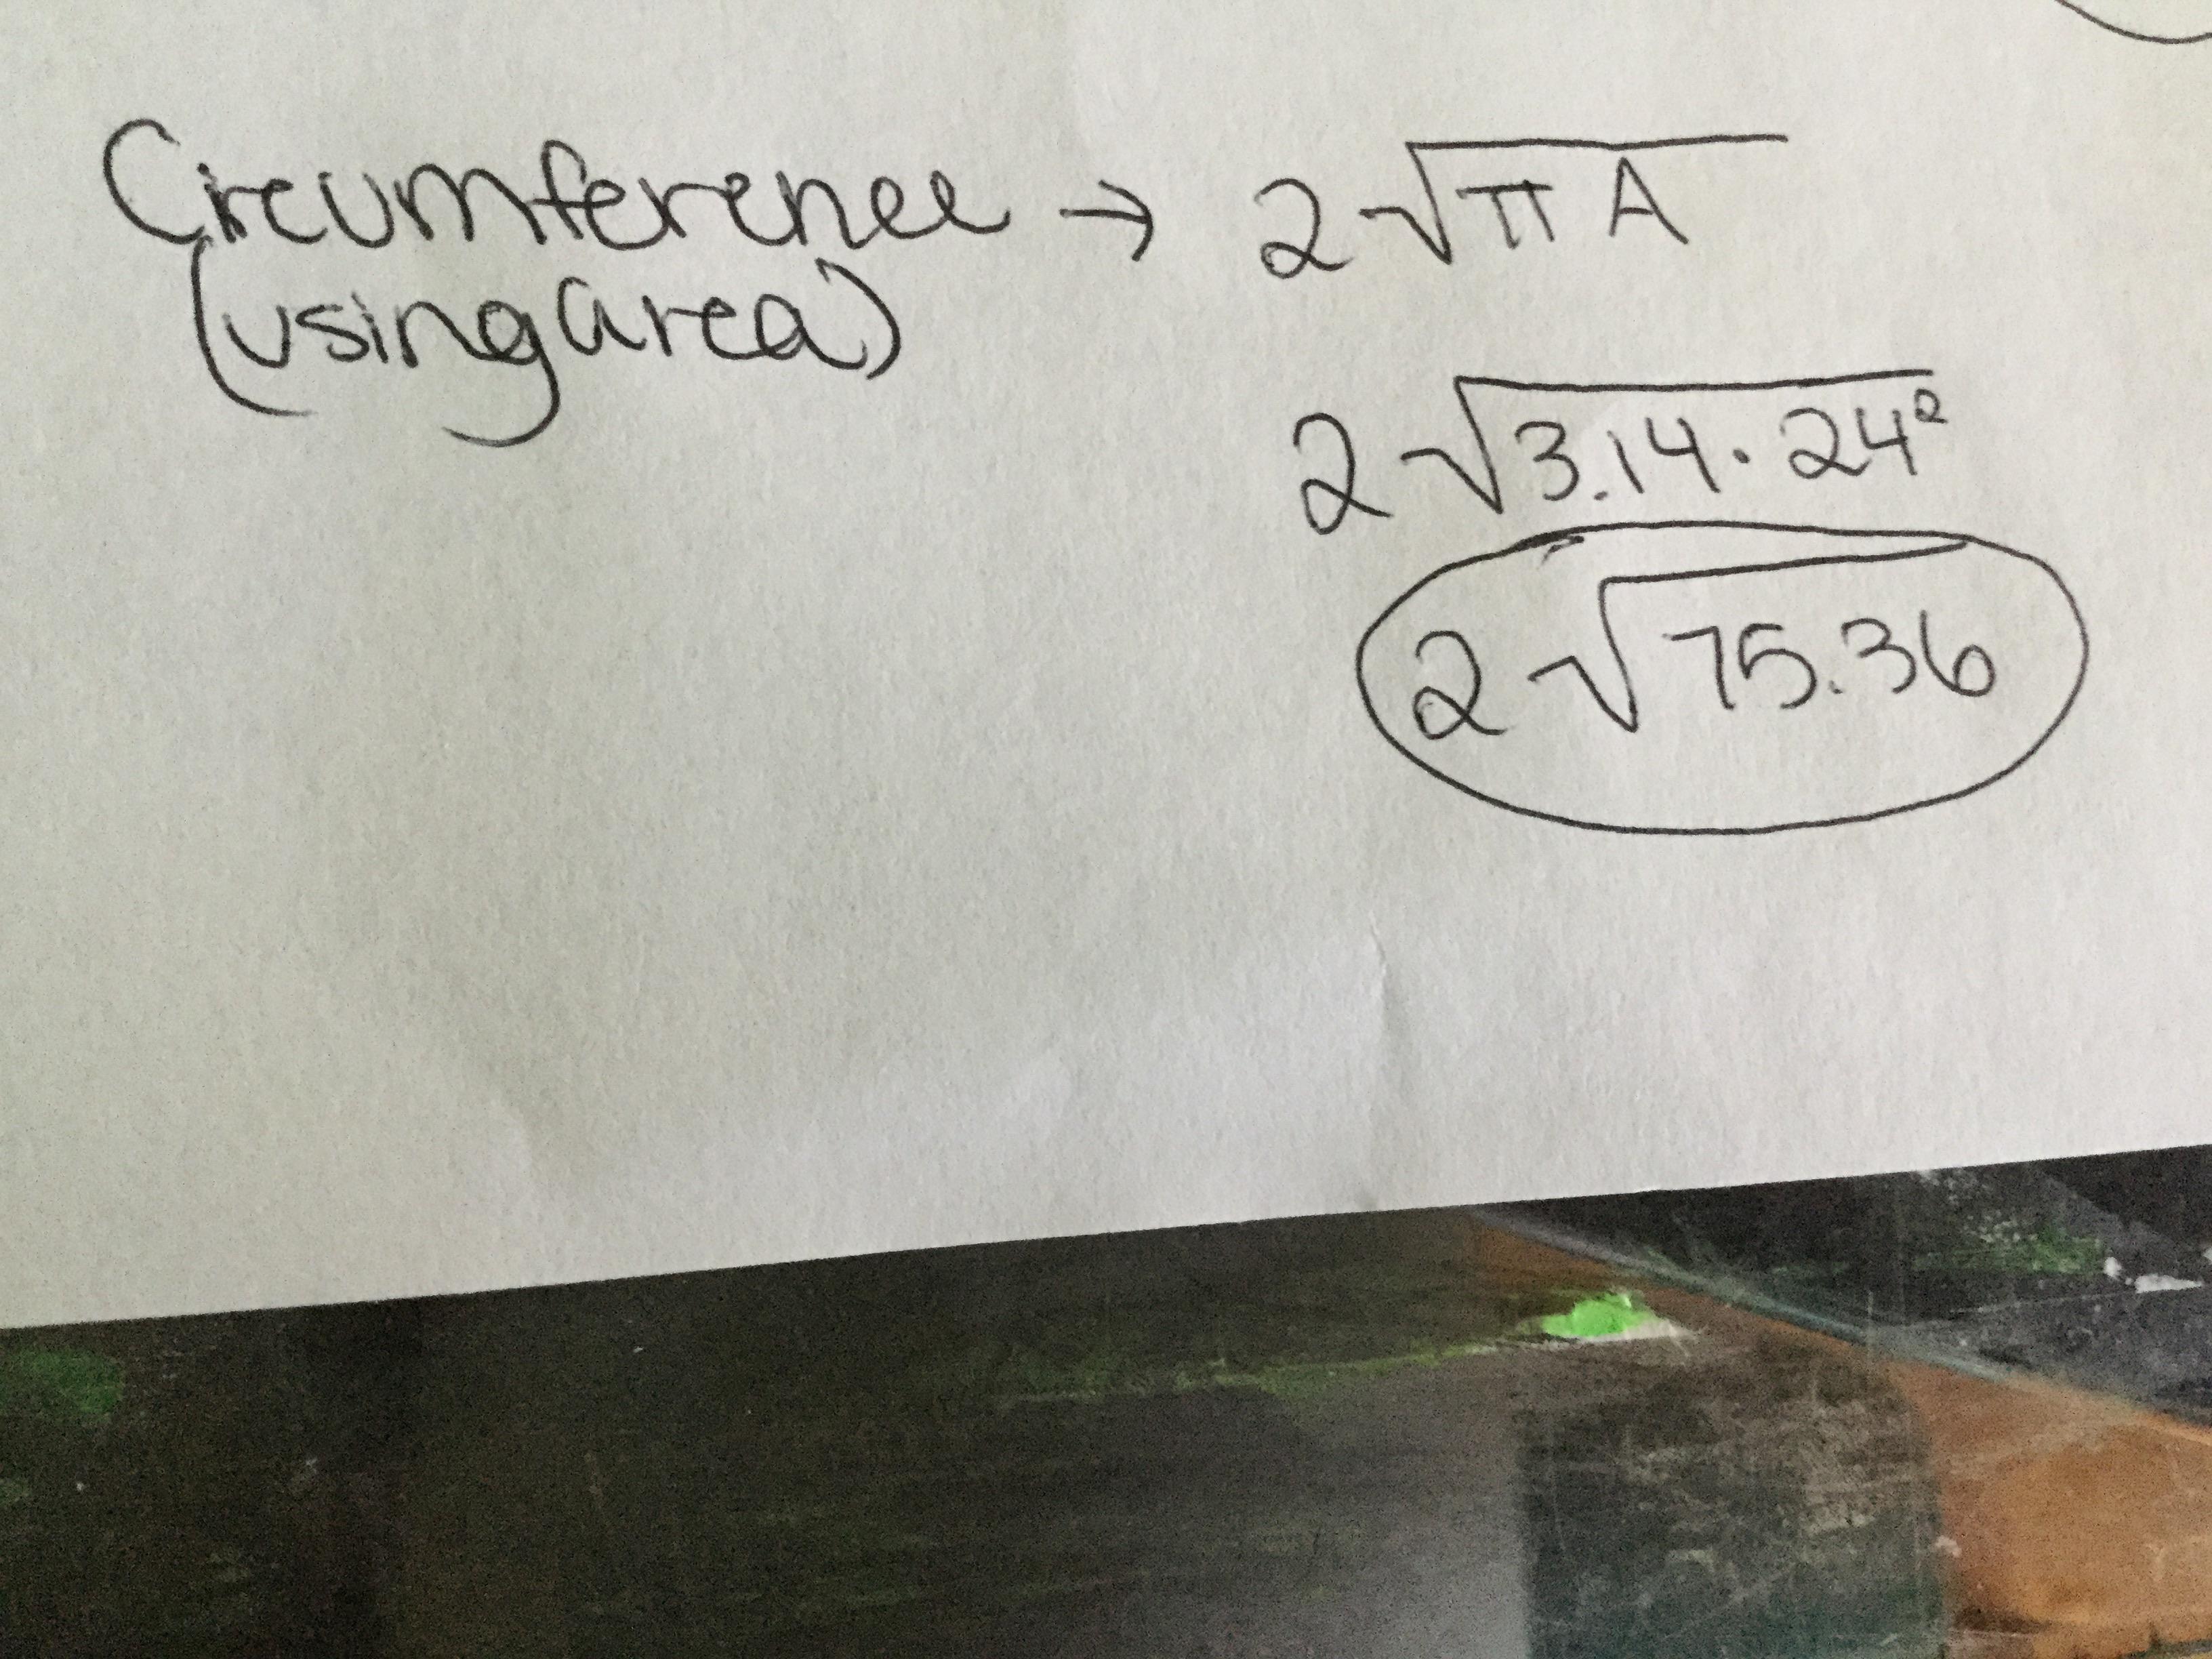 Circumference → 2√πA
(using area)
2√3.14·24²
2√75.36